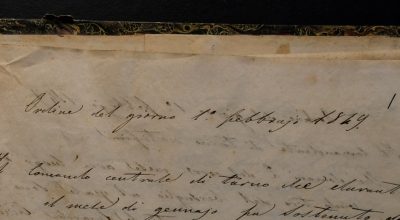 Ordine del giorno 1º febbrajo 1849.
Comando centrale di turno che durant
il mese di gennajo ha sostenuto